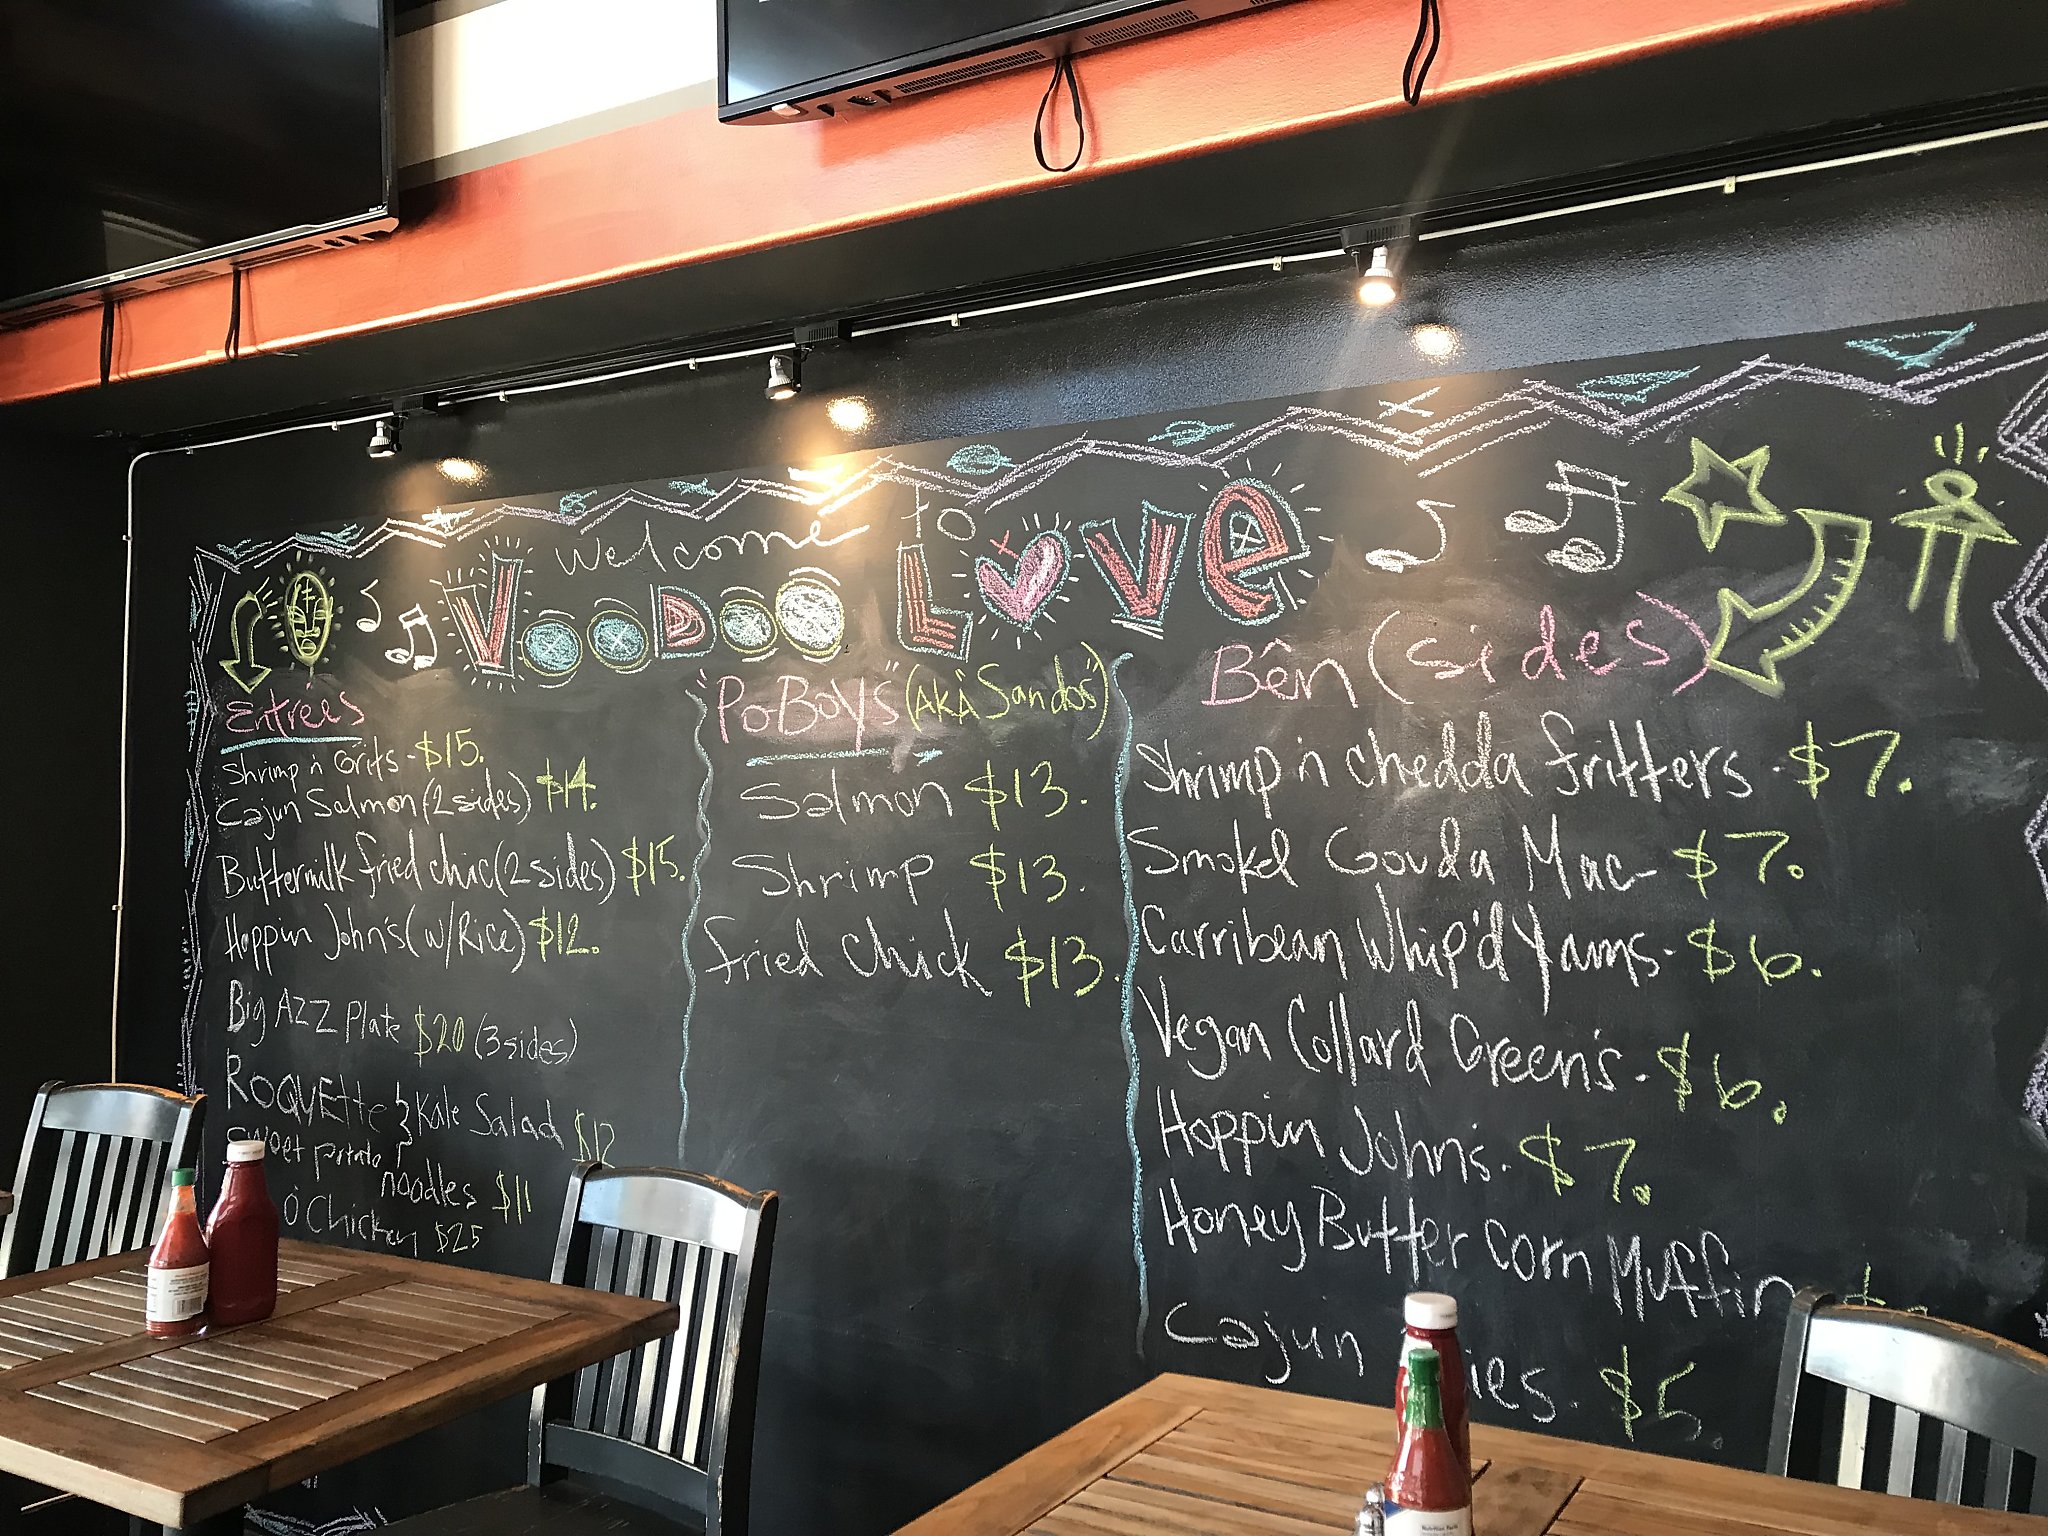 Welcome to
VOODOO LOVE
Entrées
Shrimp 'n Grits - $15.
Cajun Salmon (2 sides) $14.
Buttermilk fried chic (2 sides) $15.
Hoppin John's (w/Rice) $12.
Big AZZ Plate $20 (3 sides)
ROQUEtte } Kale Salad $12
Sweet potato } noodles $11
Chicken $25
"Po-Boys" (AKA "Sandos")
Salmon $13.
Shrimp $13.
fried chick $13.
Bên (sides)
Shrimp 'n chedda fritters . $7.
Smoked Gouda Mac - $7.
Carribean Whip'd Yams - $6.
Vegan Collard Green's . $6.
Hoppin John's . $7.
Honey Butter Corn Muffin
Cajun . $5.